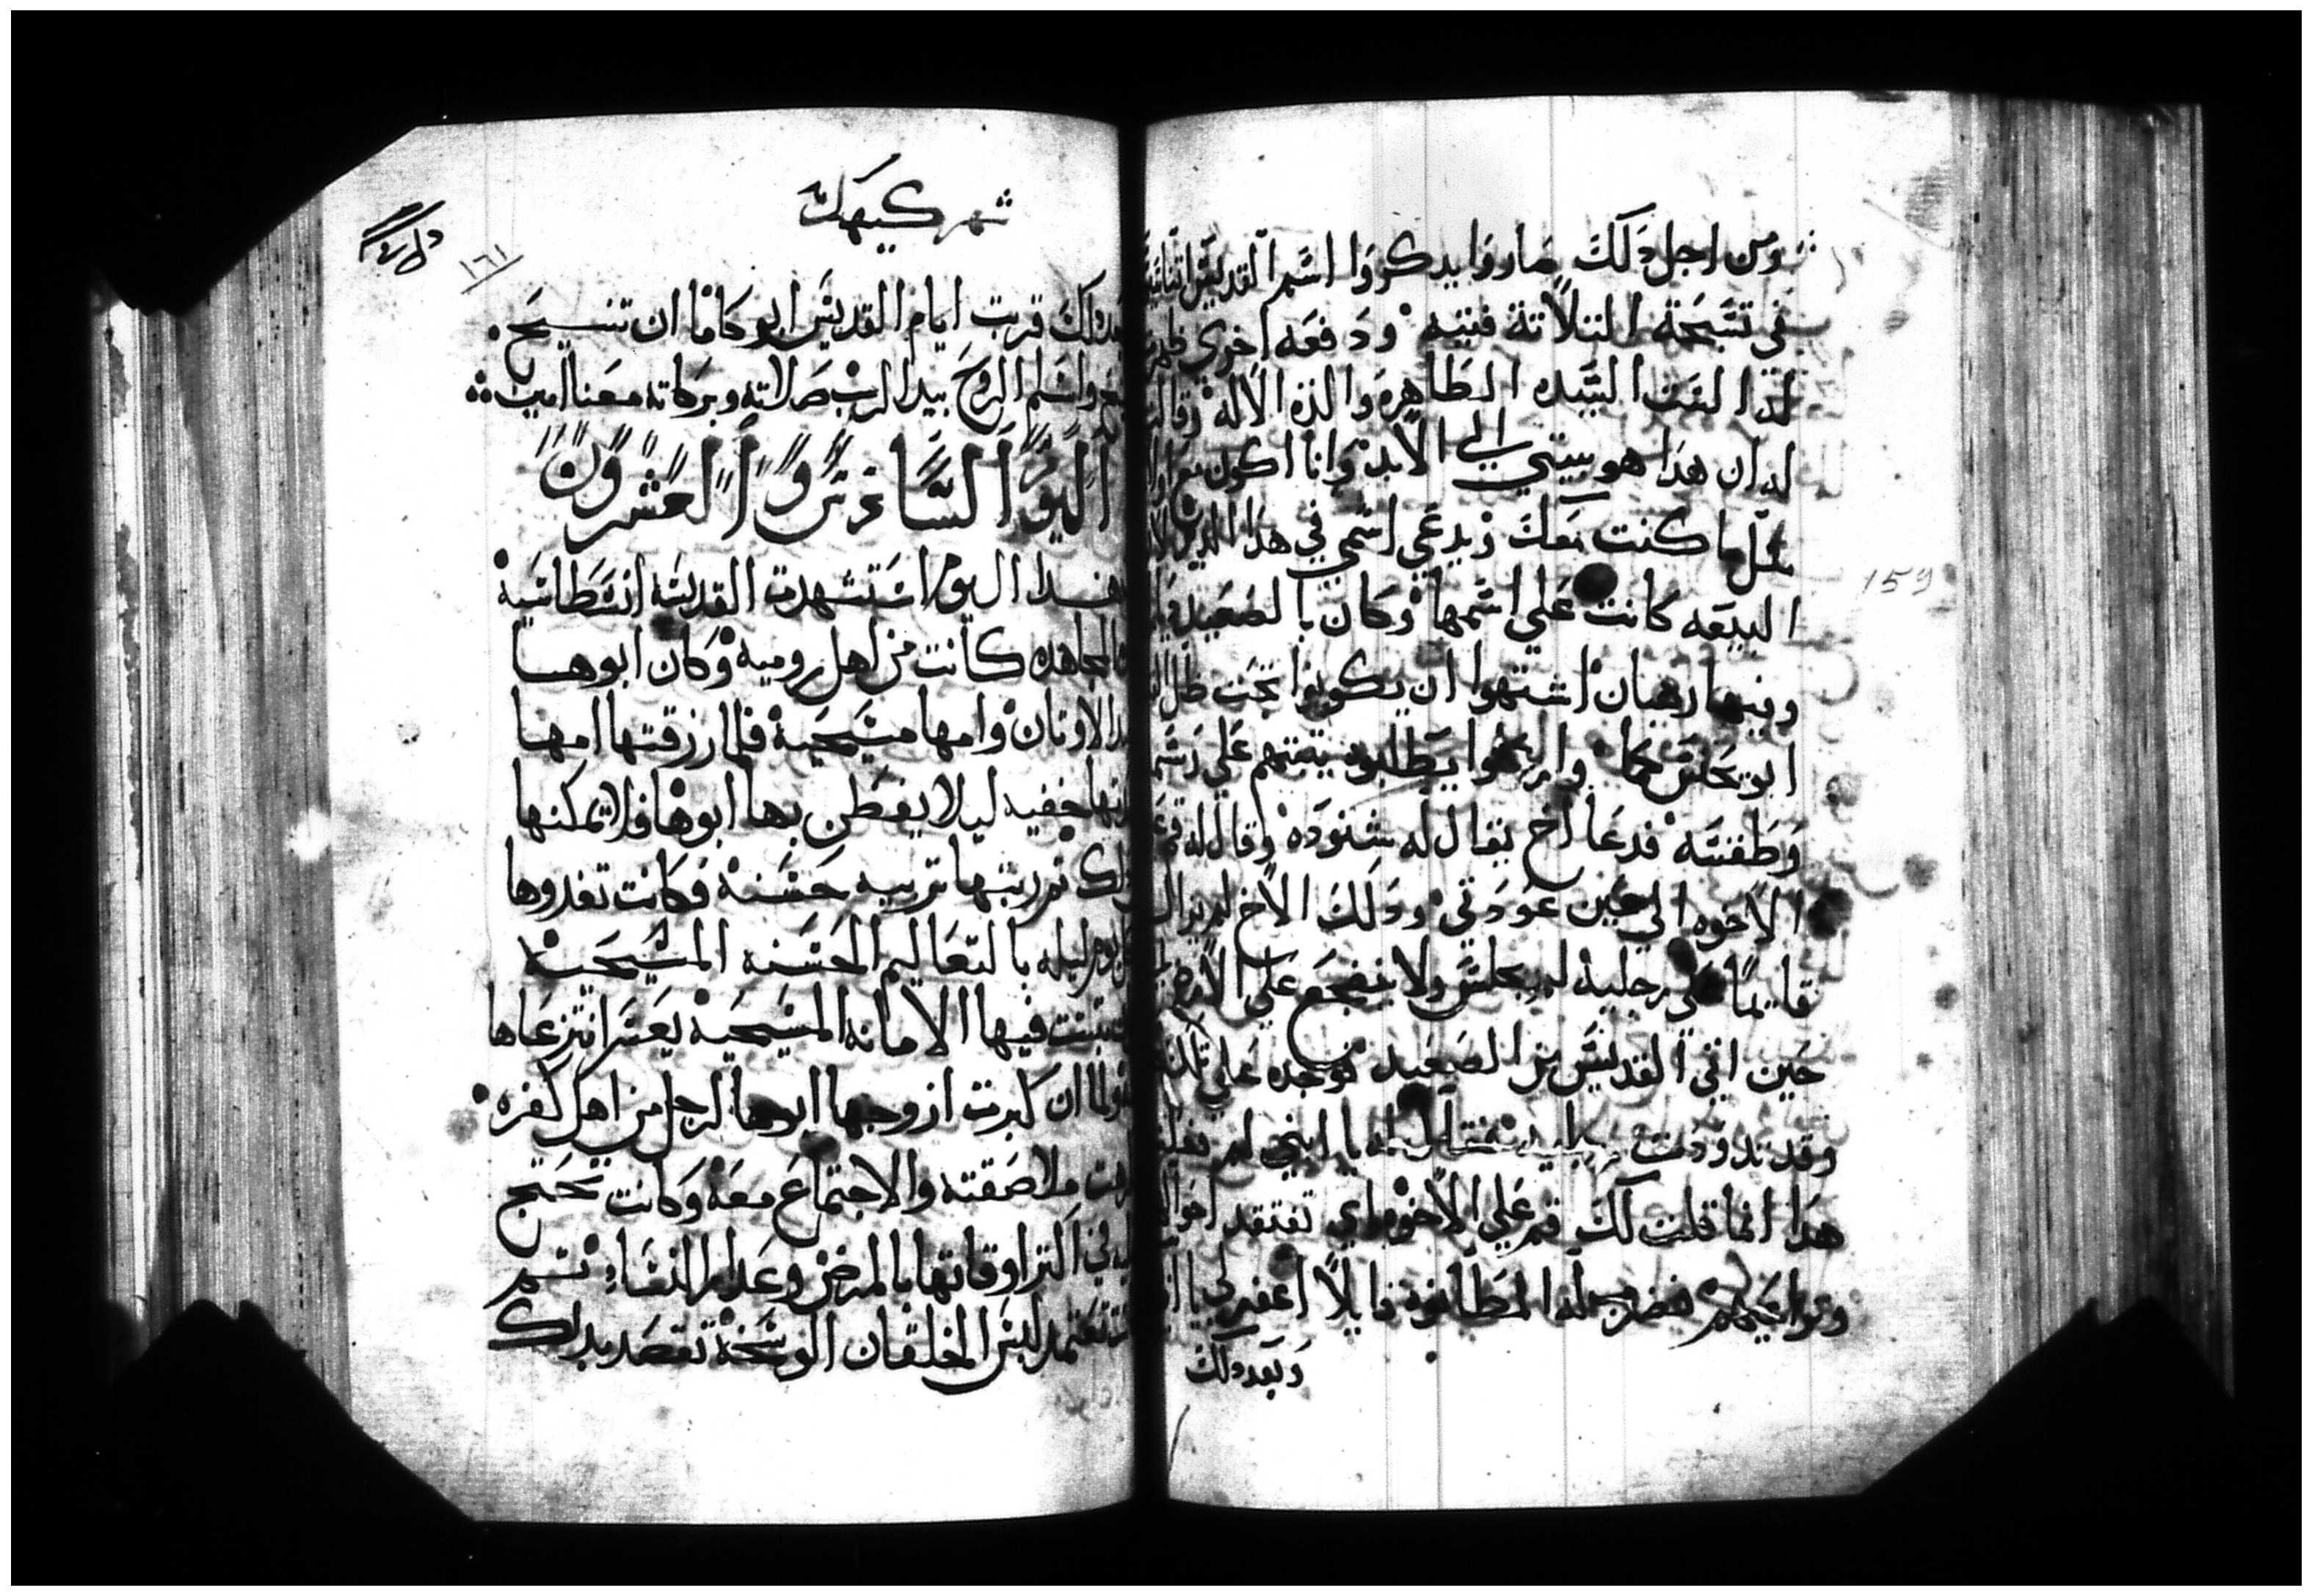 ومن اجل دلك صاروا يدكروا اسم القديس اتناسيوس
في تسبحة التلاتة فتيه ودفعه اخري ظهرت
له الست السيده الطاهره والدة الاله وقالت
له ان هدا هو بيتي الي الابد وانا اكون مع اولادك
كما كنت معك ويدعي اسمي في هدا الدير لان
البيعه كانت علي اسمها وكان بالصعيد
وفيها رهبان اشتهوا ان يكونوا تحت ظل
ابو يحنس كاما وارسلوا يطلبوه يتبتهم علي رسمه
وطقسه فدعا اخ يقال له شنوده وقال له قم علي
الاخوه الي حين عودتي ودلك الاخ لم يزال
قايما علي رجليه لم يجلس ولا يضجع علي الارض
حين اتي القديس من الصعيد فوجده علي تلك
وقد تدودت رجليه فقال له يا ابني لم
هدا انما قلت لك قم علي الاخوه اي تفتقد
فضرب له المطانوه قايلا اغفر لي يا ابي
وبعد دلك
شهر كيهك
١٦١
159
بعد دلك قربت ايام القديس ابو كاما ان تنسيح
واسلم الروح بيد الرب صلاته وبركاته معنا امين
اليوم السادس والعشرون
هدا اليوم استشهدت القديسه انسطاسية
المجاهده كانت من اهل روميه وكان ابوها
الاوتان وامها مسيحية فلما رزقتها امها
خفيه ليلا يفطن بها ابوها فلا يمكنها
دلك تم ربتها تربيه حسنة فكانت تغدوها
يوم وليله بالتعاليم الحسنه المسيحية
تبتت فيها الامانه المسيحيه يعسر انتزعاها
ولما ان كبرت ازوجها ابوها لرجل من اهل كفره
ملاصقته والاجتماع معه وكانت تحتج
في اكتر اوقاتها بالمرض وعدار النساء تم
تعتمد لبس الخلقان الوسخة تقصد بدلك